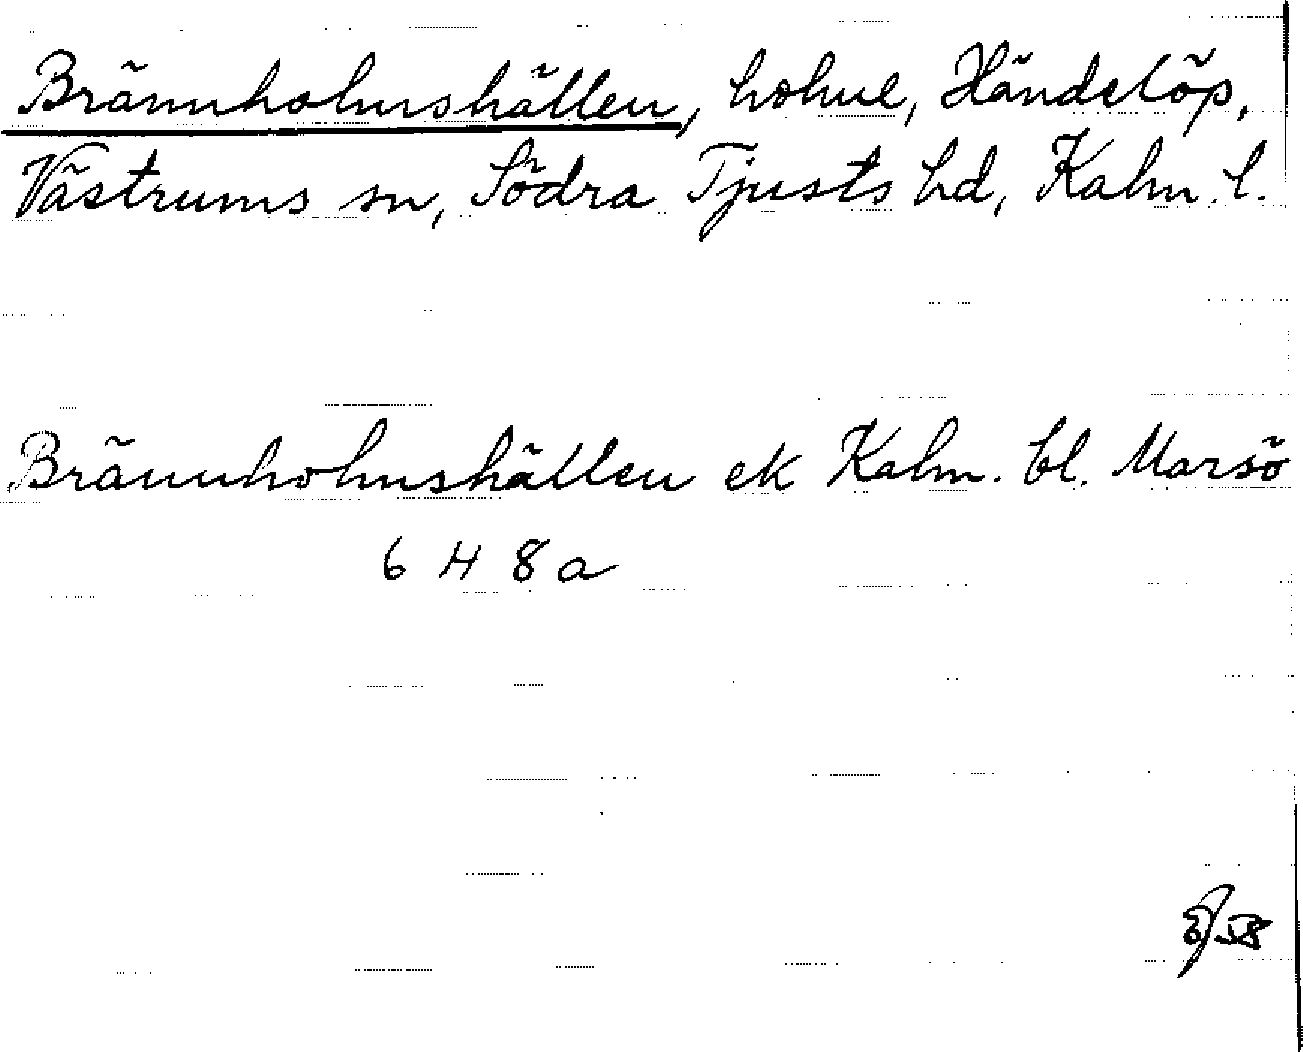 Brännholmshällen, holme, Händelöp,
Västrums sn, Södra Tjusts hd, Kalm. l.
Brännholmshällen ek Kalm. bl. Marsö
6 H 8 a